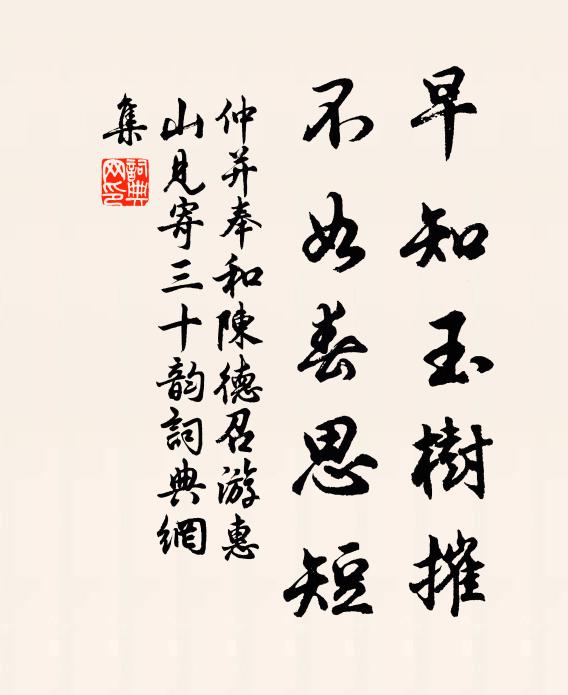 早知玉樹摧
不如春思短
仲并奉和陳德召游惠
山見寄三十韵詞典網
集
詞典網印